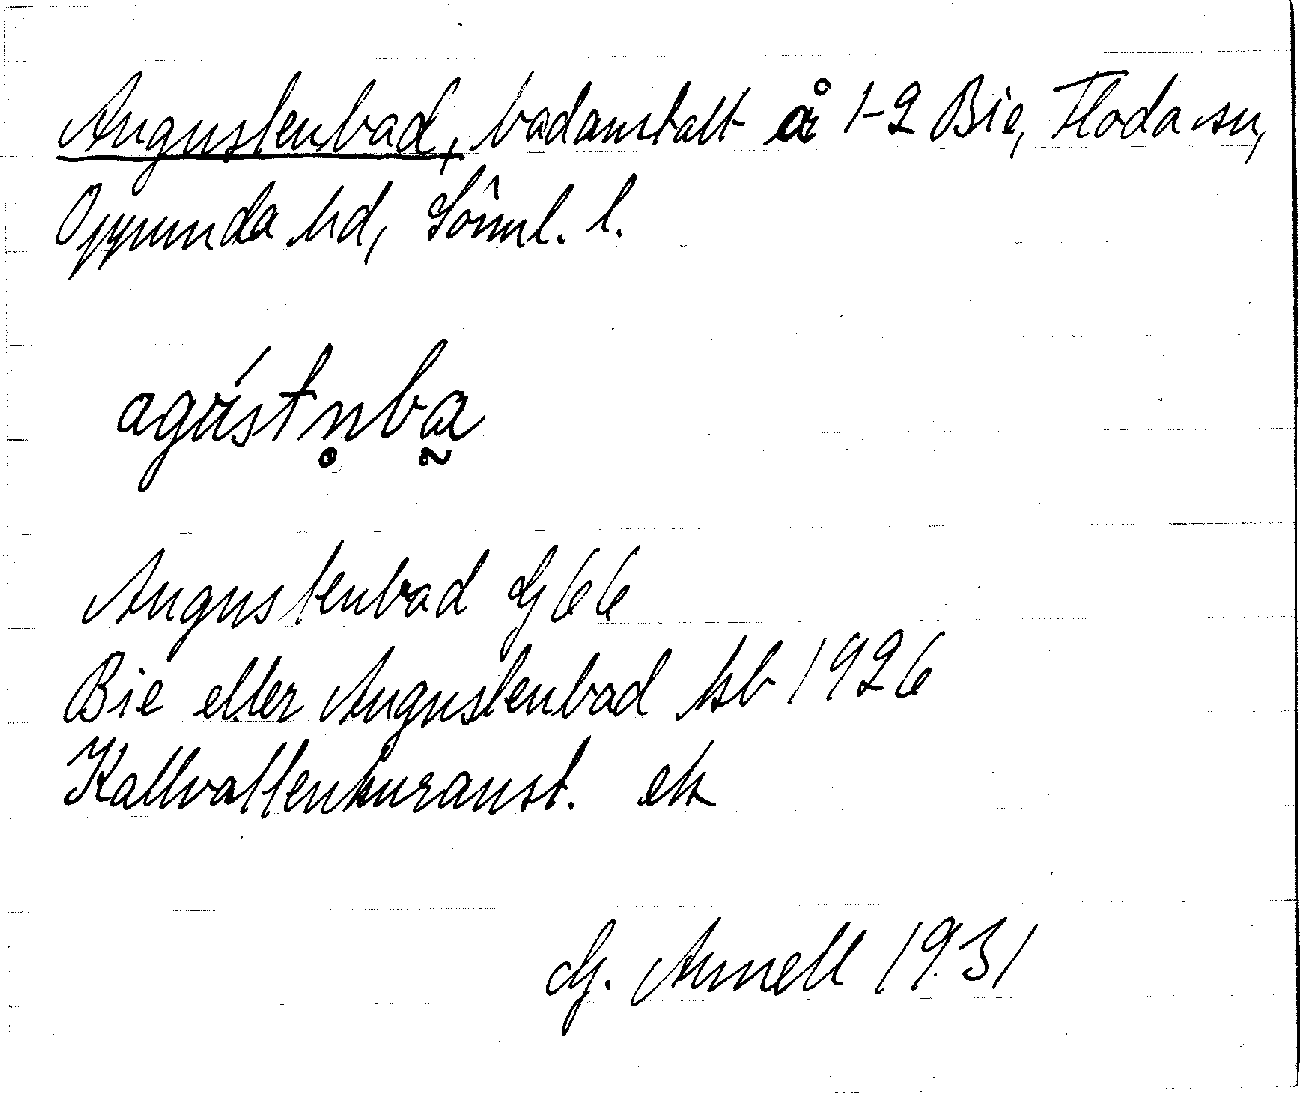 Augustenbad, badanstalt å 1-2 Bie, Floda sn,
Oppunda hd, Söml. l.
agústn̥ba̰
Augustenbad G 66
Bie eller Augustenbad hsb 1926
Kallvattenkuranst. ek
G. Arnell 1931